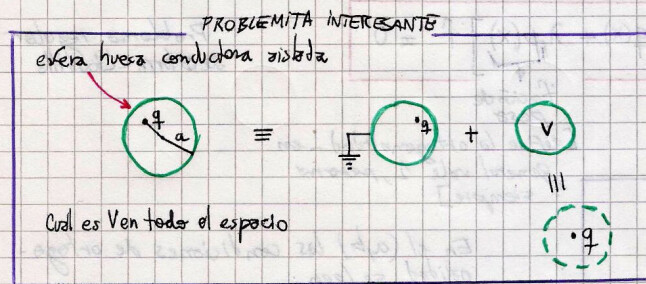 PROBLEMITA INTERESANTE
esfera hueca conductora aislada
q
a
≡
q
+
V
≡
Cual es V en todo el espacio
q